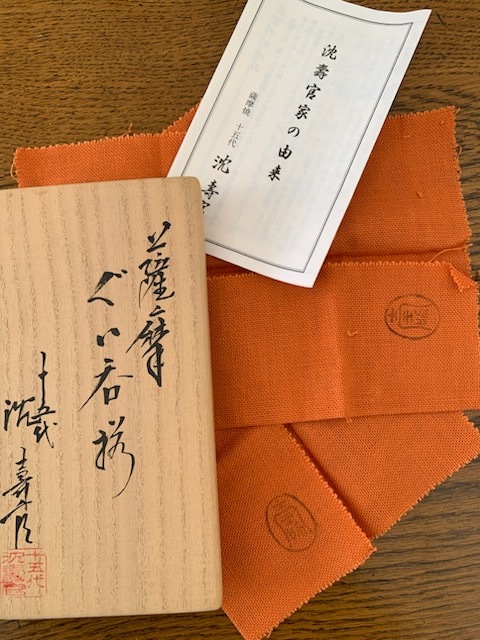 沈壽官家の由来
薩摩燒 十五代 沈壽
薩摩
ぐい呑揃
十五代
沈壽官
十五代
沈壽官